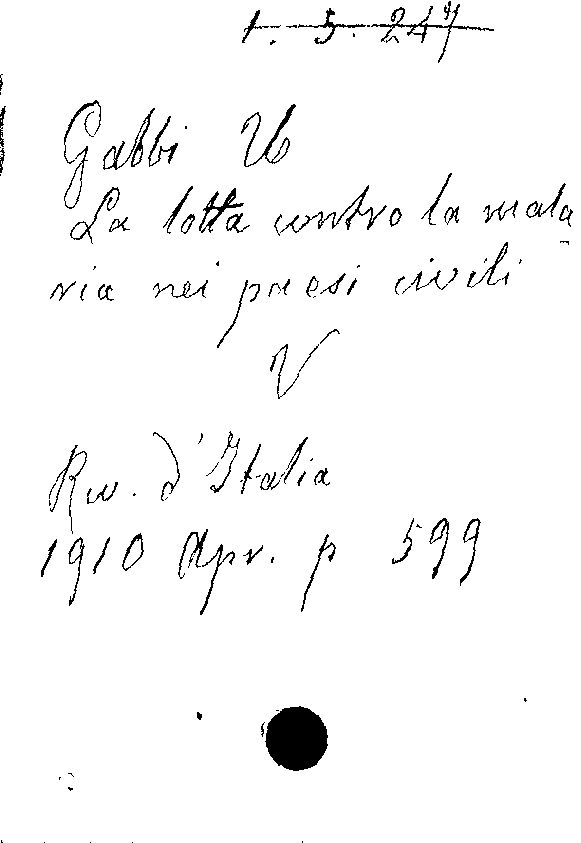 1. 5. 247
Gabbi U
La lotta contro la mala
ria nei paesi civili
V
Riv. d'Italia
1910 Apr. p 599